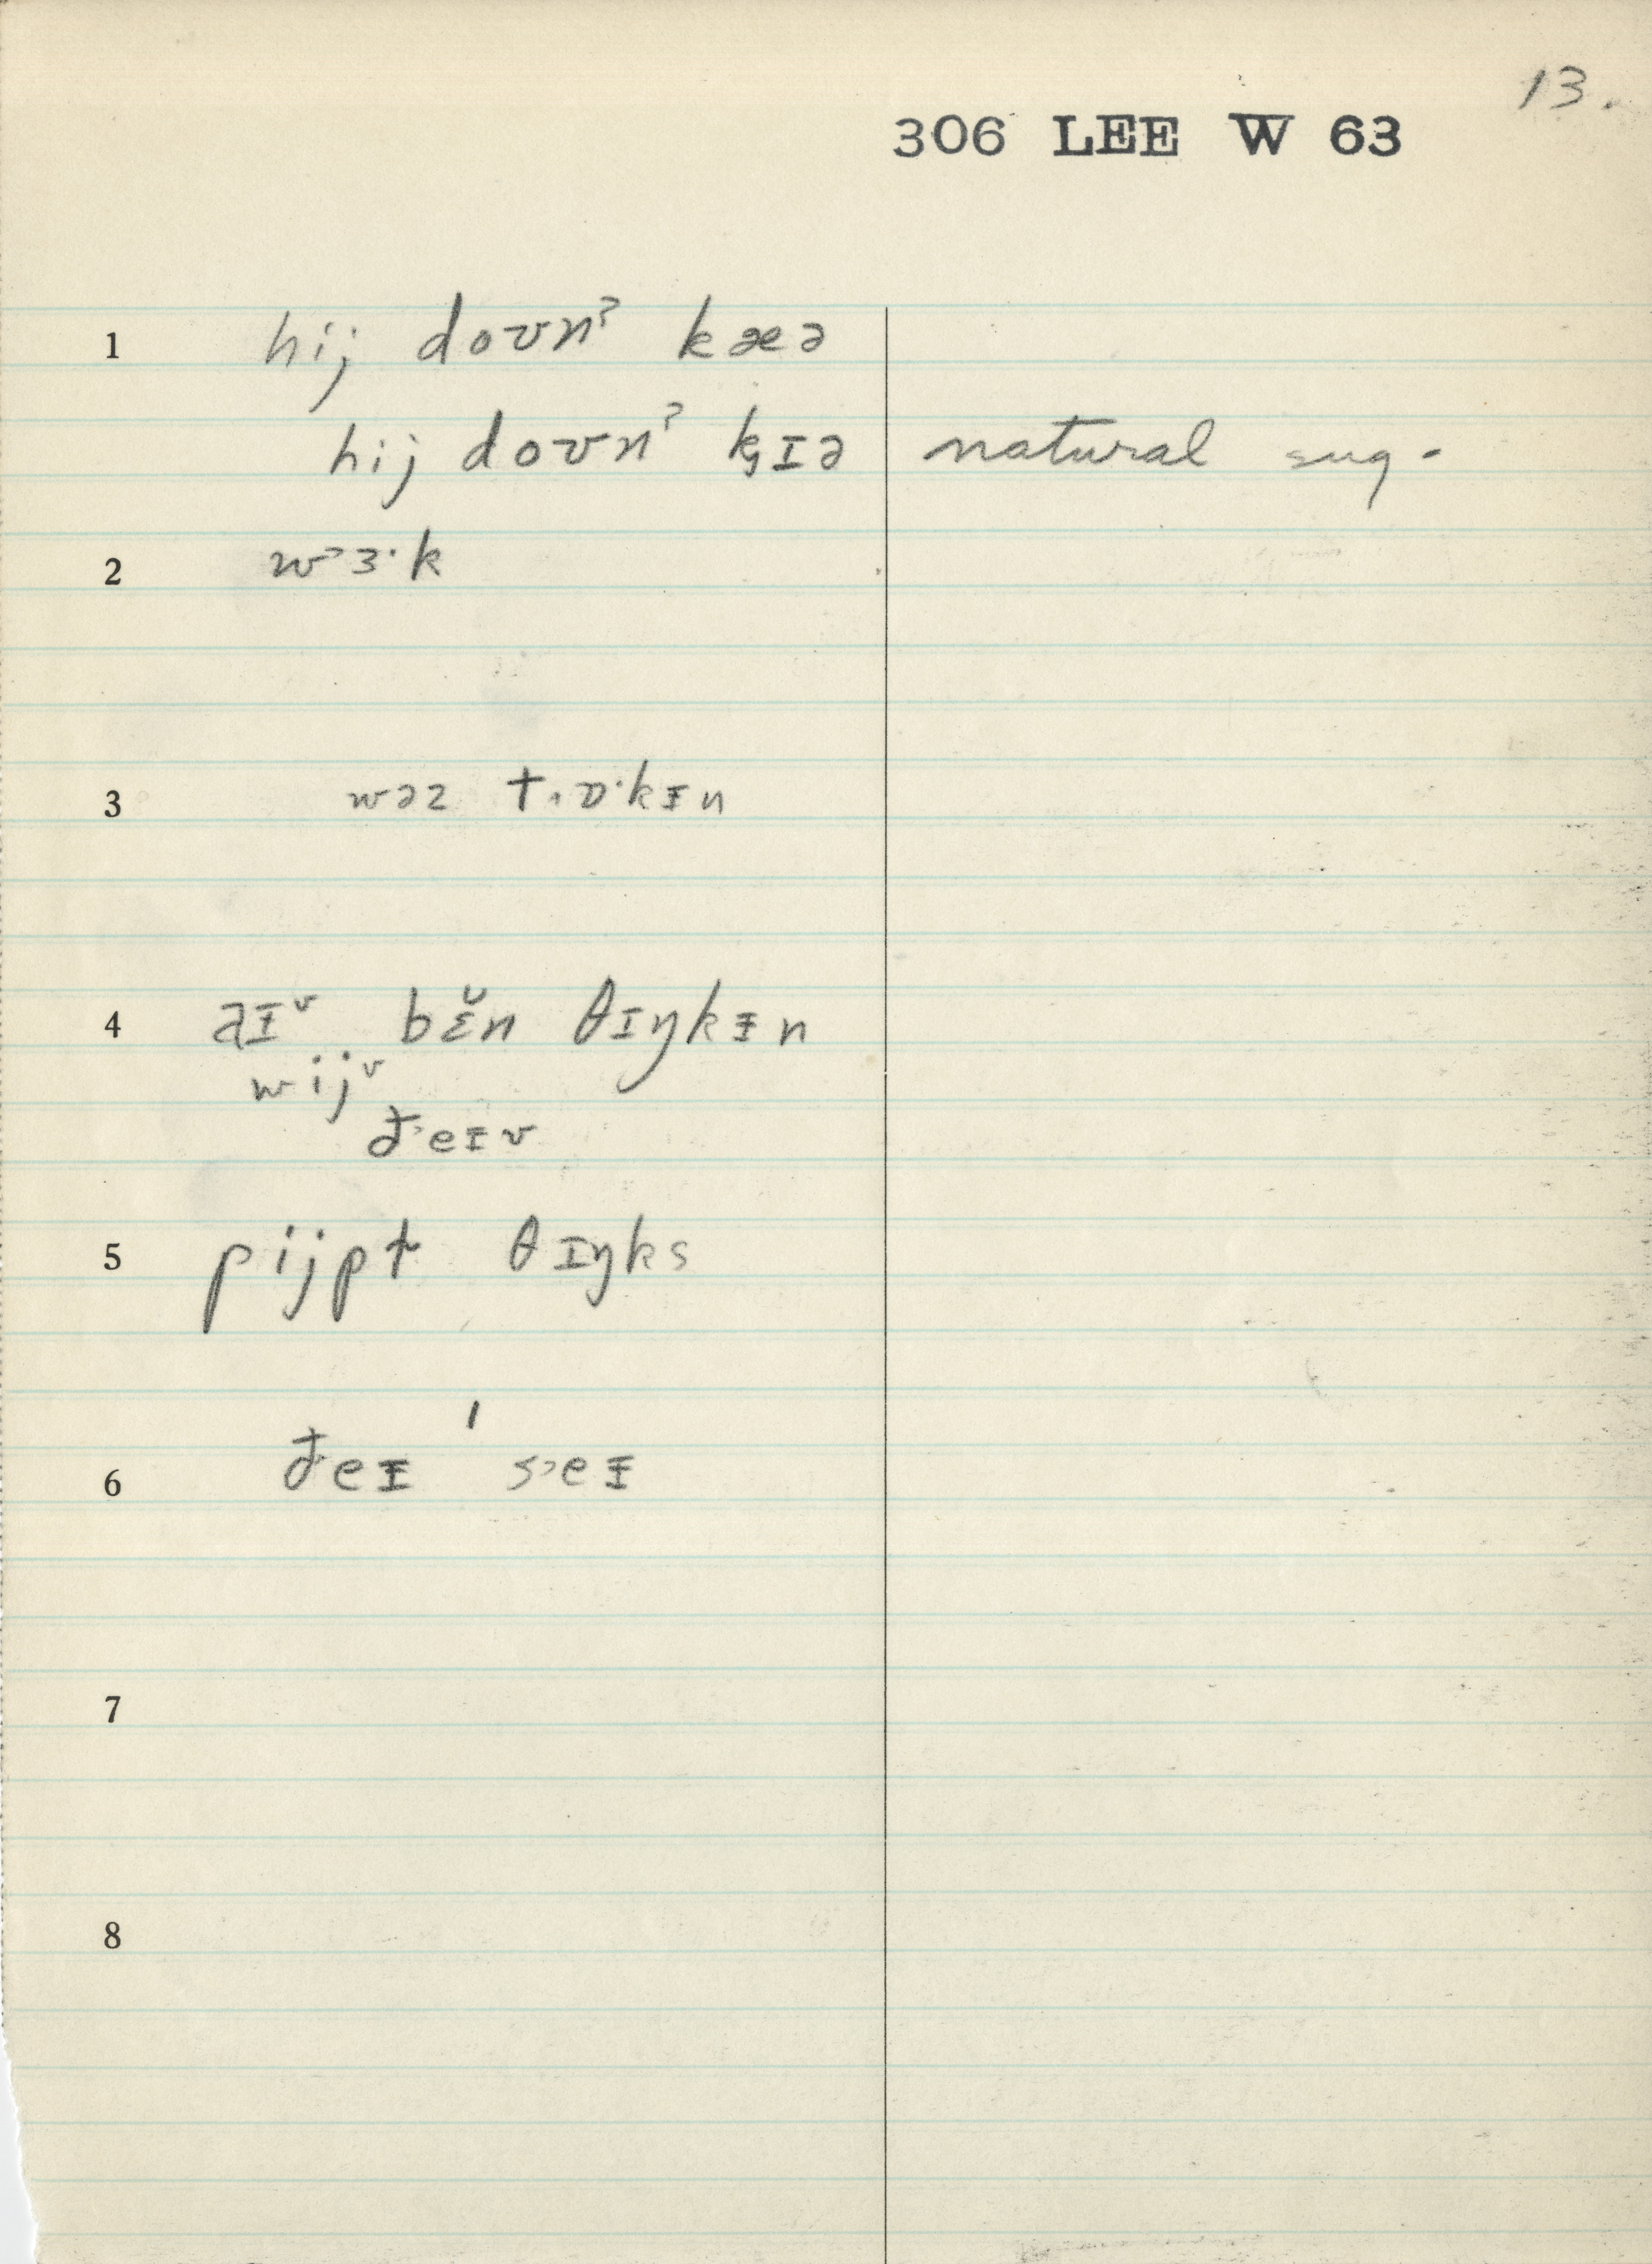 13.
306 LEE W 63
1 hij doʊnˀ kæə
hij doʊnˀ k̡ɪə natural sug.
2 w˃ɜ·k
3 wəz t˒ɒ·kɪ̵n
4 aɪ̵ᵛ bɛ̆n θɪŋkɪ̵n
wijᵛ
ð˃eɪ̵v
5 pijpɫ θɪŋks
6 ðeɪ̵ ˈs˃eɪ̵
7
8